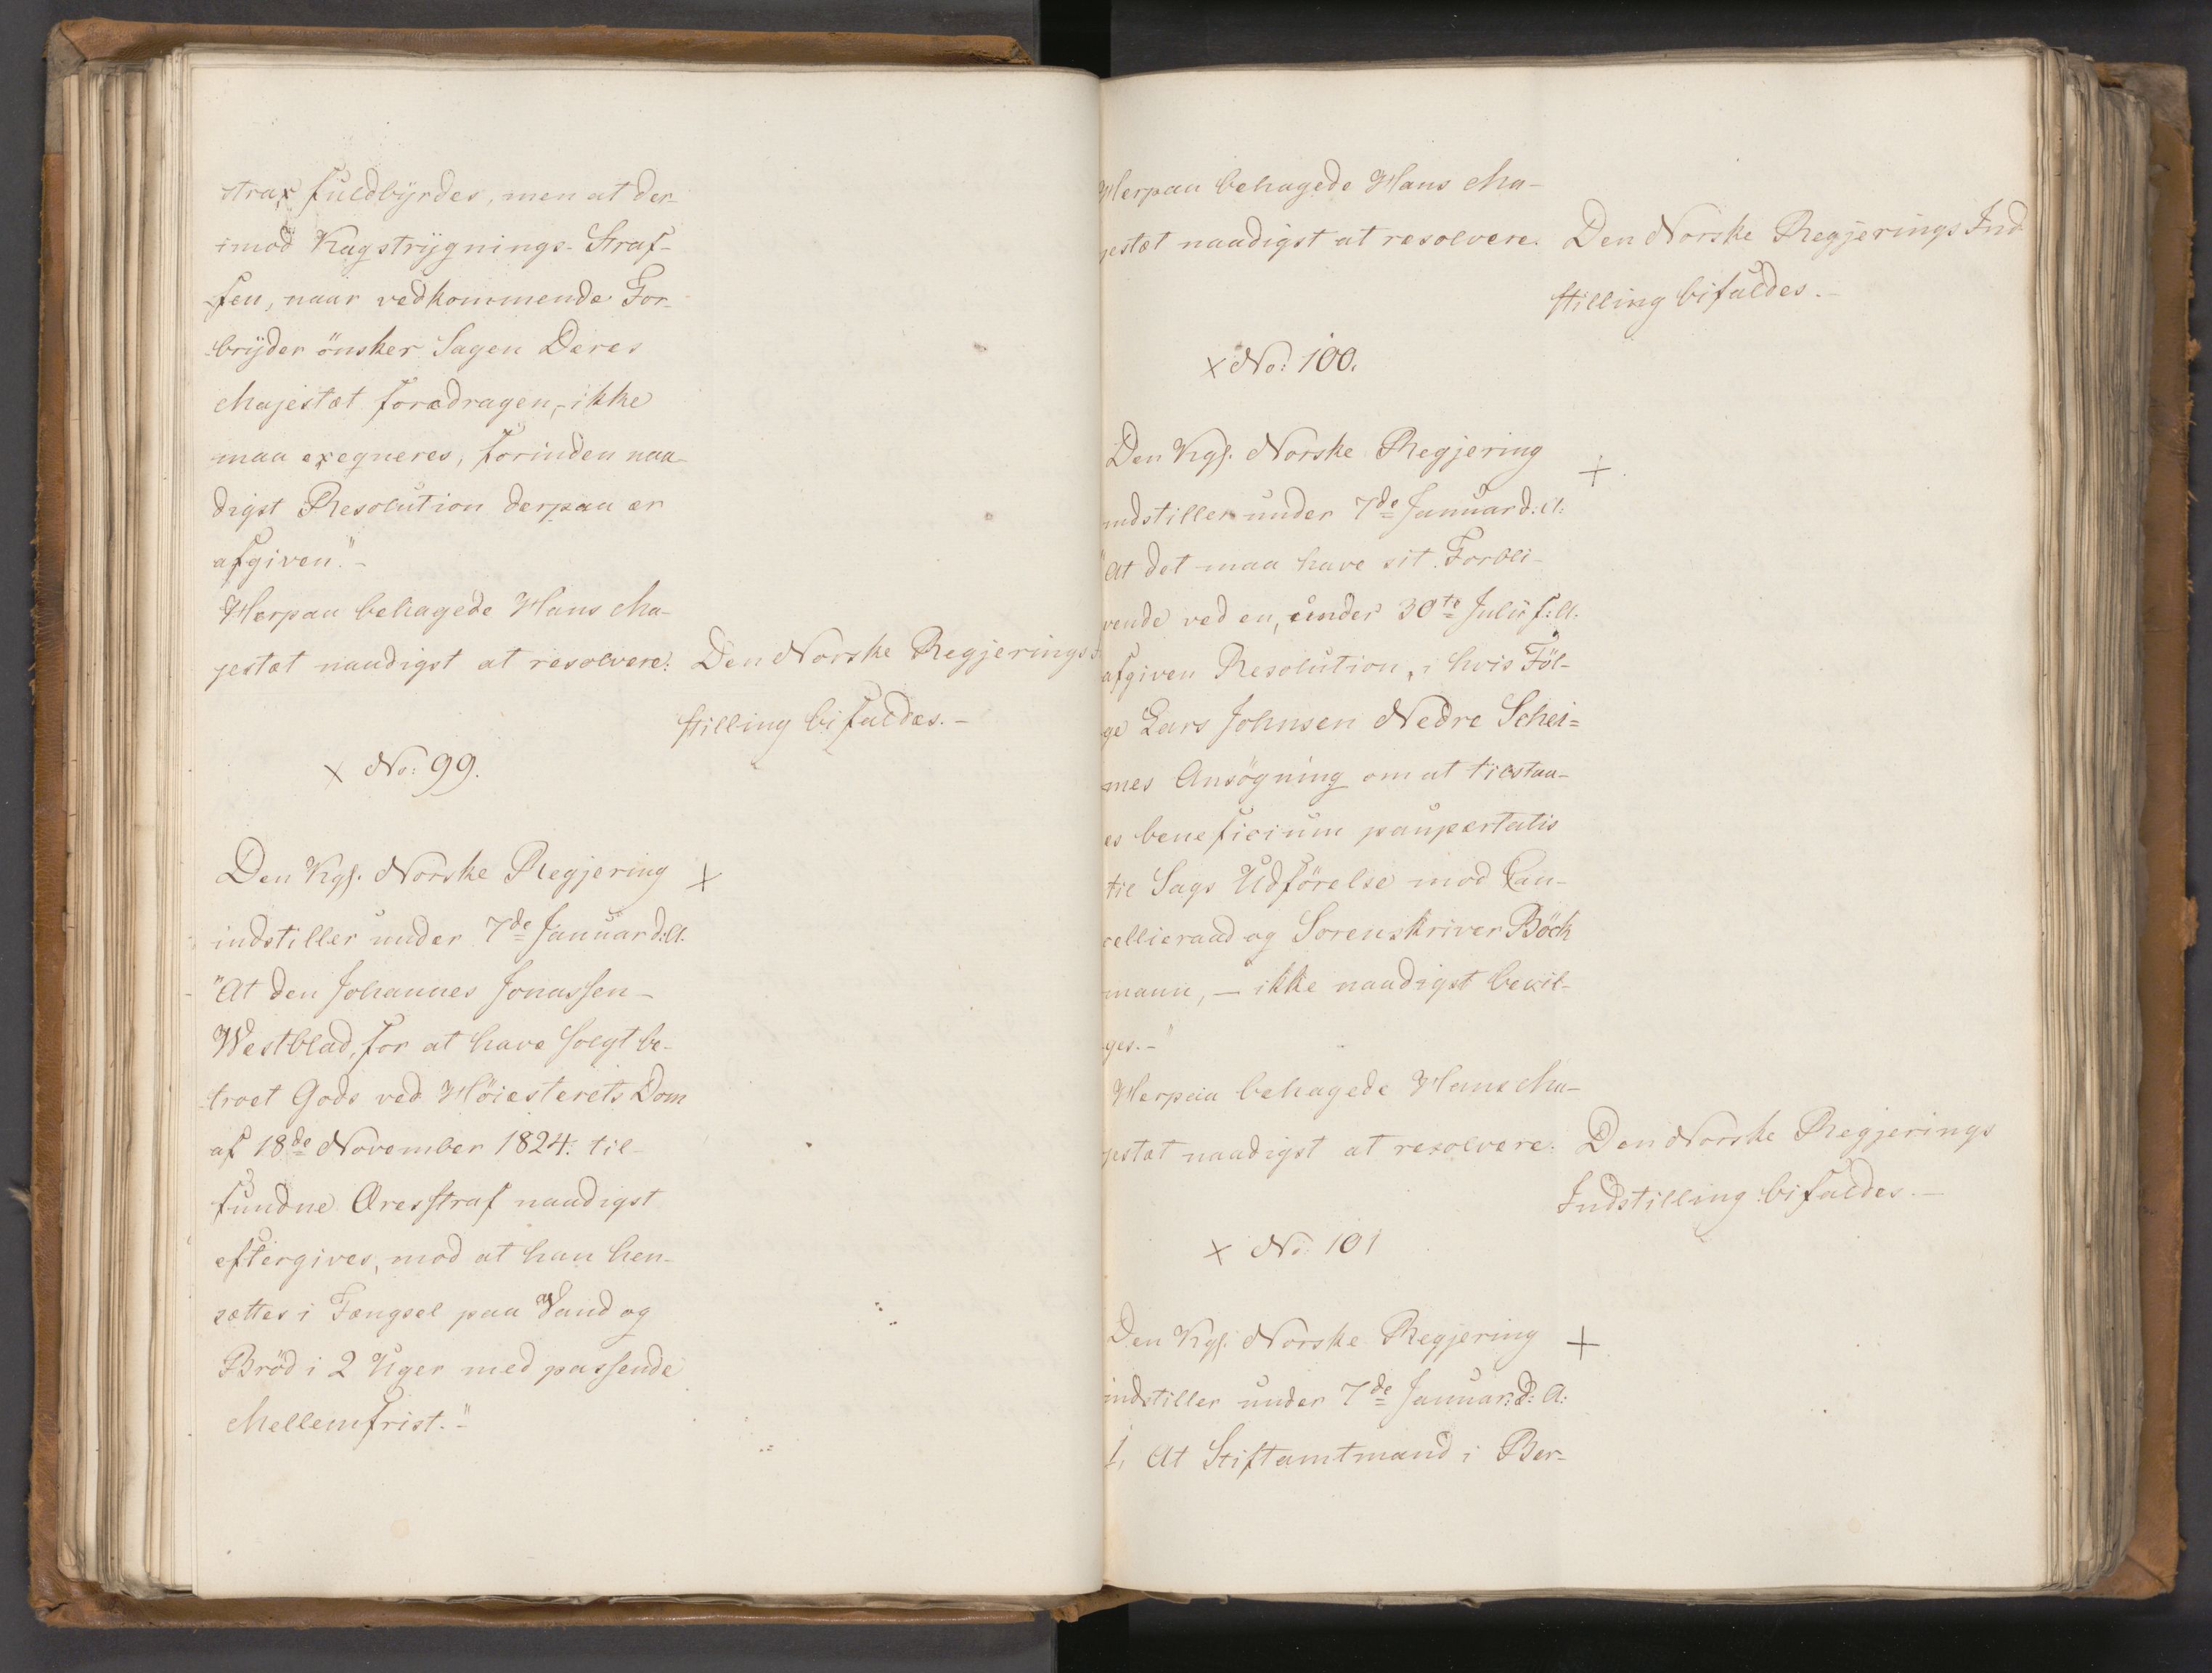 strax fuldbÿrdes, men at der-
imod Kagstrÿgnings-Straf-
fen, naar vedkommende For-
brÿder önsker Sagen Deres
Majestæt foredragen, ikke
maa exeqveres, forinden naa-
digst Resolution derpaa er
afgiven."-
Herpaa behagede Hans Ma-
jestæt naadigst at resolvere: Den Norske Regjerings
stilling bifaldes.-
x No: 99.
Den Kgl. Norske Regjering x
indstiller under 7de Januar d:A.
"At den Johannes Jonassen
Westblad, for at have solgt be-
troet Gods ved Höiesterets Dom
af 18de November 1824. til-
fundne Æresstraf naadigst
eftergives, mod at han hen-
sættes i Fængsel paa Vand og
Bröd i 2 Uger med passende
Mellemfrist."
Herpaa behagede Hans Ma-
jestæt naadigst at resolvere. Den Norske Regjerings Ind-
stilling bifaldes.-
x No: 100.
Den Kgl. Norske Regjering +
indstiller under 7de Januar d:A:
"At det maa have sit Forbli-
vende ved en, under 30te Julii f:A.
afgiven Resolution, i hvis Föl-
ge Lars Johnsen Nedre Schei=
mes Ansögning om at tilstaa-
es beneficium paupertatis
til Sags Udförelse mod Can-
cellieraad og Sorenskriver Böck
mann, - ikke naadigst bevil-
ges.-"
Herpaa behagede Hans Ma-
jestæt naadigst at resolvere. Den Norske Regjerings
Indstilling bifaldes.-
x No: 101
Den Kgl. Norske Regjering +
indstiller under 7de Januar: d: A:
1, At Stiftamtmand i Ber-